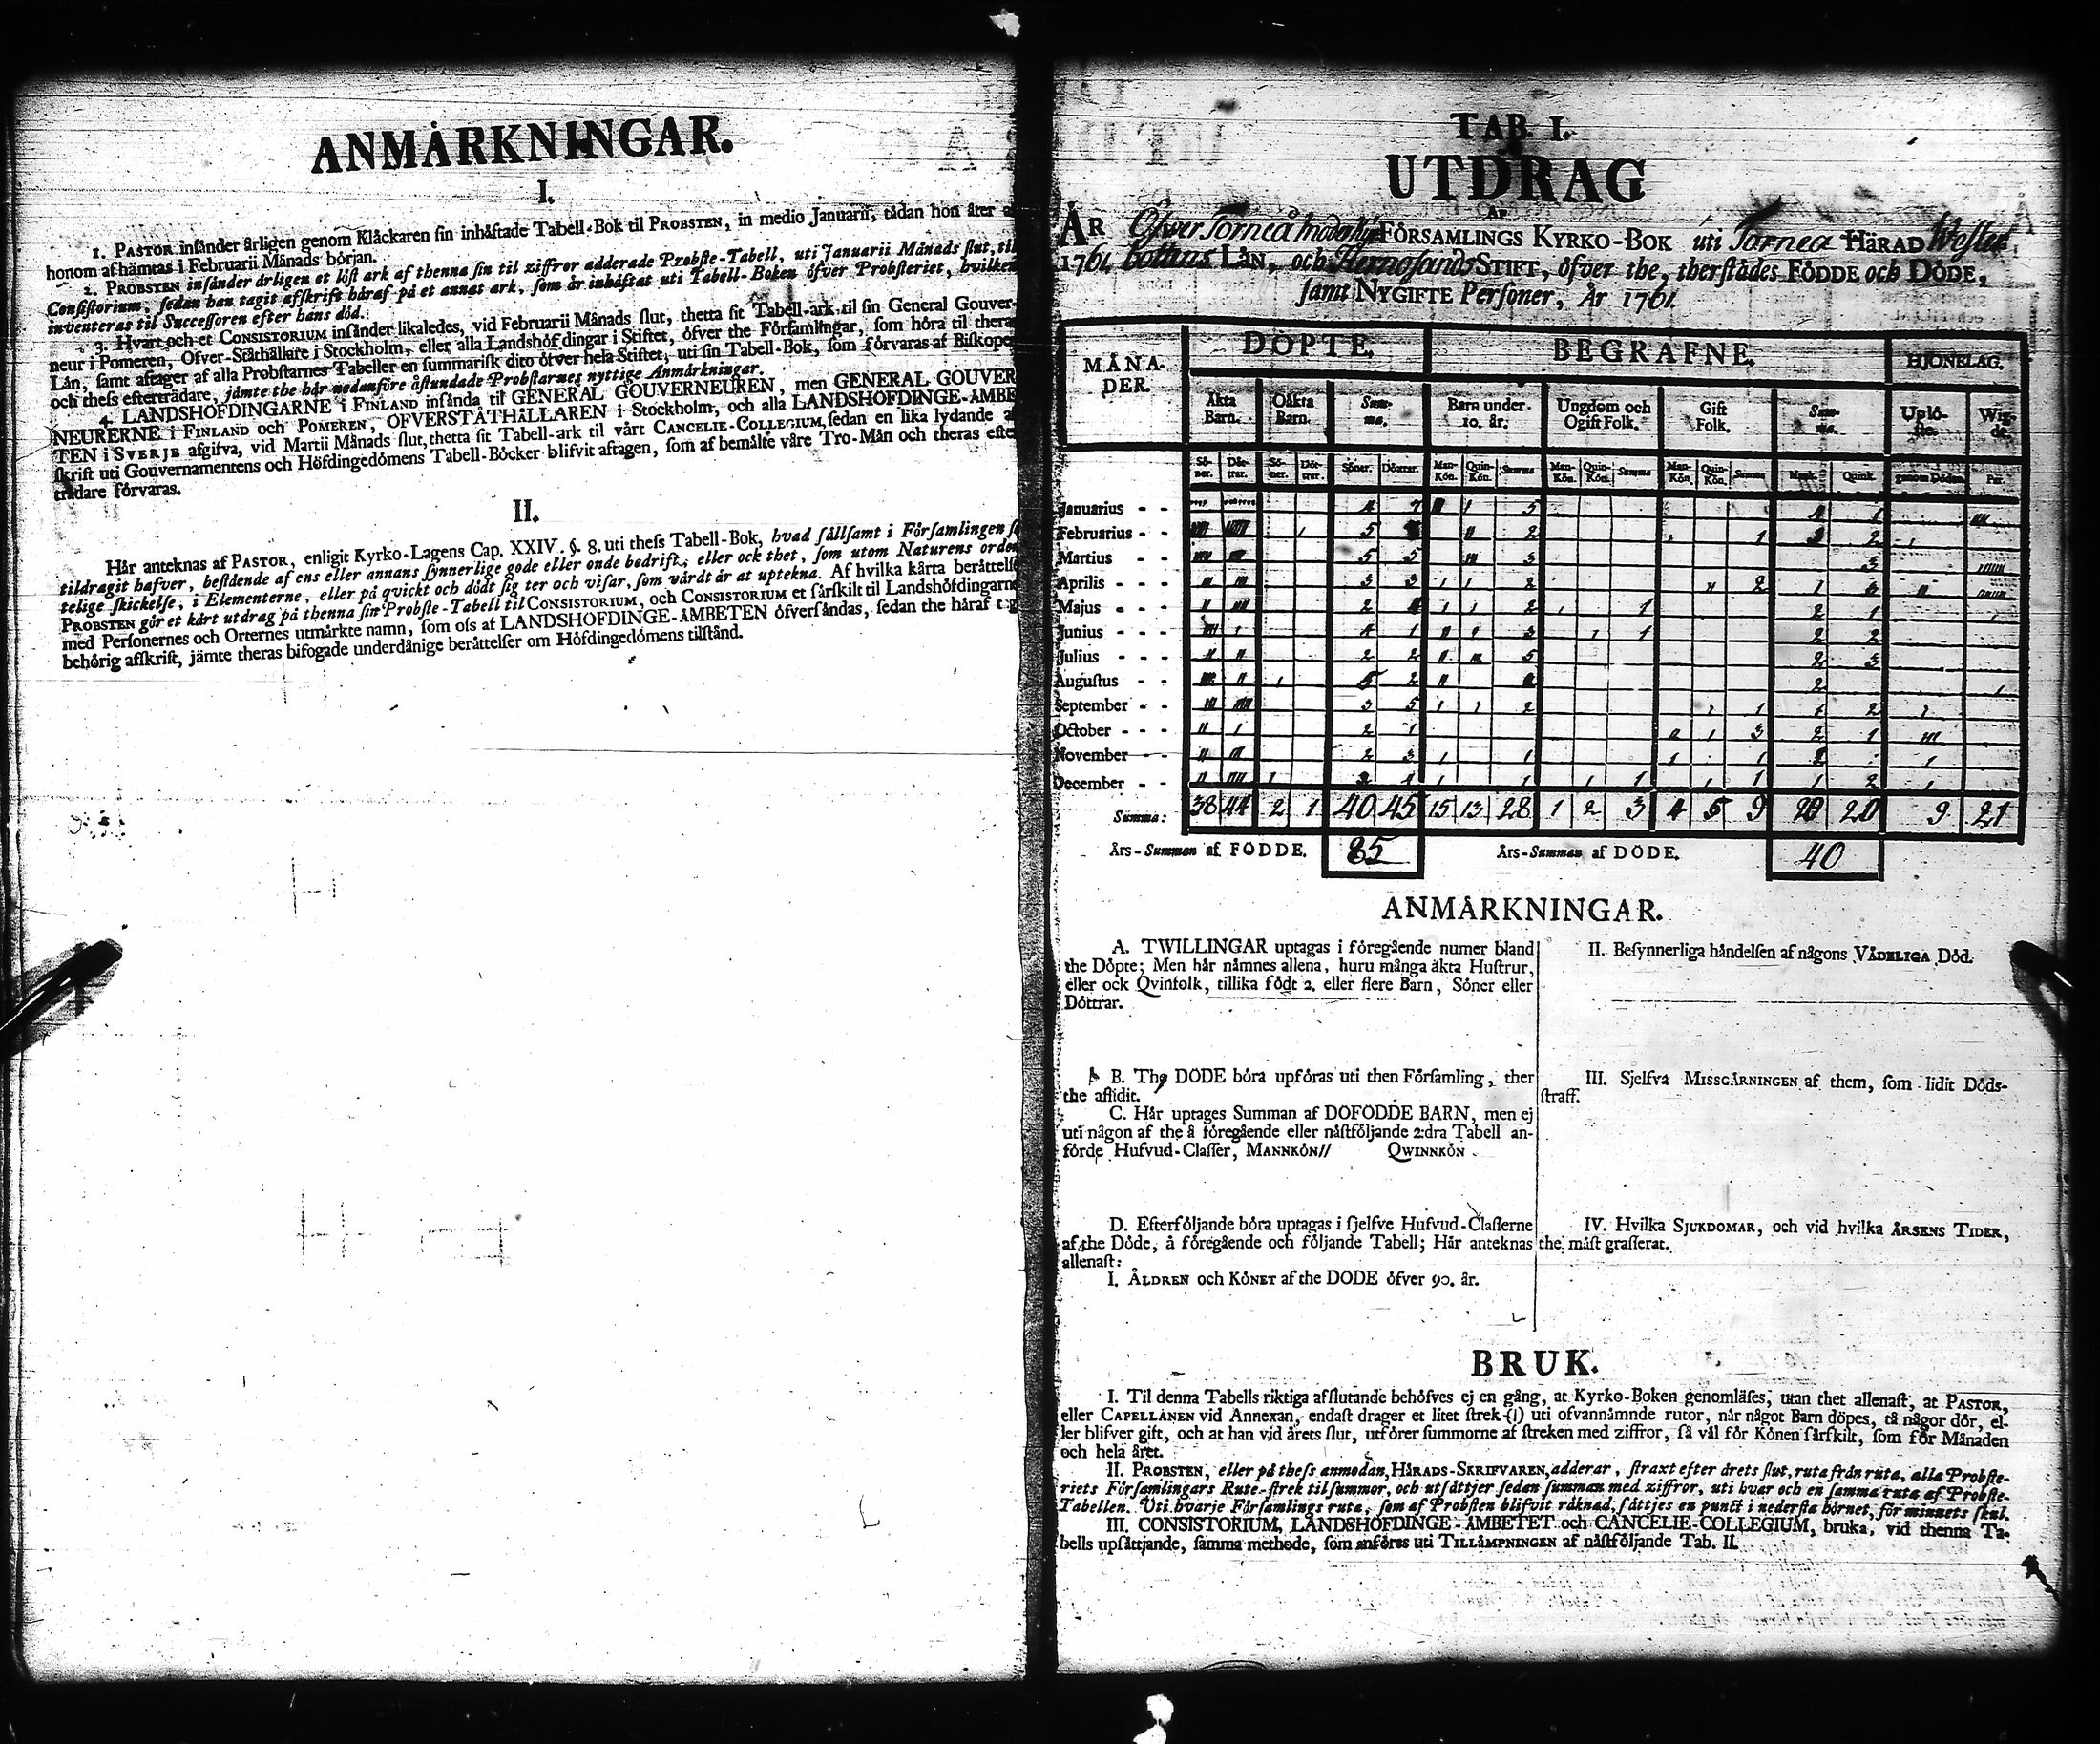 ANMÅRKNINGAR.
I.
1. PASTOR insånder årligen genom Klåckaren sin inhåftade Tabell-Bok til PROBSTEN, in medio Januarii, tådan hon åter a
honom afhämtas i Februarii Månads början.
2. PROBSTEN insånder årligen et löst ark af thenna sin til ziffror adderade Probste-Tabell, uti Januarii Månads slut, til
Consistorium, sedan han tagit afskrift håraf på et annat ark, som år inhåftat uti Tabell-Boken öfver Probsteriet, hvilken
inventeras til Successoren efter hans död.
3. Hvart och et CONSISTORIUM insånder likaledes, vid Februarii Månads slut, thetta sit Tabell-ark til sin General Gouver-
neur i Pomeren, Ofver-Ståthållare i Stockholm, eller alla Landshöfdingar i Stiftet, öfver the Församlingar, som höra til thera
Lån, samt aftager af alla Probstarnes Tabeller en summarisk dito öfver hela Stiftet, uti sin Tabell-Bok, som förvaras af Biskope
och thess efterträdare, jåmte the hår nedanföre åstundade Probstarnes nyttige Anmårkningar.
4. LANDSHÖFDINGARNE i FINLAND insånda til GENERAL GOUVERNEUREN, men GENERAL GOUVER
NEURERNE i FINLAND och POMEREN, ÖFVERSTÅTHÅLLAREN i Stockholm, och alla LANDSHÖFDINGE-ÅMBE
TEN i SVERJE afgifva, vid Martii Månads slut, thetta sit Tabell-ark til vårt CANCELIE-COLLEGIUM, sedan en lika lydande a
skrift uti Gouvernamentens och Höfdingedömens Tabell-Böcker blifvit aftagen, som af bemålte våre Tro-Mån och theras efte
trådare förvaras.
II.
Hår anteknas af PASTOR, enligit Kyrko-Lagens Cap. XXIV. §. 8. uti thess Tabell-Bok, hvad sållsamt i Församlingen så
tildragit hafver, bestående af ens eller annans synnerlige gode eller onde bedrift, eller ock thet, som utom Naturens orden
telige skickelse, i Elementerne, eller på quickt och dödt sig ter och visar, som vårdt år at uptekna. Af hvilka kårta beråttelse
PROBSTEN gör et kårt utdrag på thenna sin Probste-Tabell til CONSISTORIUM, och CONSISTORIUM et sårskilt til Landshöfdingarne
med Personernes och Orternes utmårkte namn, som oss af LANDSHÖFDINGE-ÅMBETEN öfversåndas, sedan the håraf tag
behörig afskrift, jämte theras bifogade underdånige beråttelser om Höfdingedömens tilstånd.
TAB. I.
UTDRAG
AF
ÅR Öfwer Torneå moderkyr FÖRSAMLINGS KYRKO-BOK uti Tornea HÄRAD Wester
1761. bottns LÅN, och Hernosands STIFT, öfver the, therstådes FÖDDE och DÖDE,
samt NYGIFTE Personer, År 1761.
MÅNADER. DÖPTE. BEGRAFNE. HJONELAG.
Äkta Barn. Oäkta Barn. Summa. Barn under 10. år. Ungdom och Ogift Folk. Gift Folk. Summa. Uplöste. Wigde.
Söner. Döttrar. Söner. Döttrar. Söner. Döttrar. Man-Kön. Quin-Kön. Summa Man-Kön. Quin-Kön. Summa Man-Kön. Quin-Kön. Summa Mank. Quink. genom Döden. Par.
Januarius - - 4 7 II I 5 4 1
Februarius - - I 5 II 2 1 2
Martius 5 5 III 3 3
Aprilis - - - 3 3 I I 2 II 2 1 II
Majus - - - 2 I I 2 I 1 2 1
Junius - - - 4 1 II I 3 I 1 2 2
Julius - - - 2 2 II III 5 2 3
Augustus - - I 5 2 II 2 2 I
September - - 3 5 I I 2 I 1 1 2 I
October - - - 2 1 II I 3 2 1 III
November - - 2 3 I 1 I 1 I
December - - I 3 4 I 1 I 1 I 1 1 2 I
Summa: 38 44 2 1 40 45 15 13 28 1 2 3 4 5 9 20 20 9 21
Års-Summan af FÖDDE. 85 Års-Summan af DÖDE. 40
ANMÅRKNINGAR.
A. TWILLINGAR uptagas i föregående numer bland
the Döpte; Men hår nåmnes allena, huru många äkta Hustrur,
eller ock Qvinfolk, tillika födt 2. eller flere Barn, Söner eller
Döttrar.
B. The DÖDE böra upföras uti then Församling, ther
the aflidit.
C. Hår uptages Summan af DÖFÖDDE BARN, men ej
uti någon af the å föregående eller nåstföljande 2:dra Tabell an-
förde Hufvud-Classer, MANNKÖN // QWINNKÖN
D. Efterföljande böra uptagas i sjelfve Hufvud-Classerne
af the Döde, å föregående och följande Tabell; Hår anteknas
allenast:
I. ÅLDREN och KÖNET af the DÖDE öfver 90. år.
II. Besynnerliga håndelsen af någons VÅDELIGA Död.
III. Sjelfva MISSGÅRNINGEN af them, som lidit Döds-
straff.
IV. Hvilka SJUKDOMAR, och vid hvilka ÅRSENS TIDER,
the måst grasserat.
BRUK.
I. Til denna Tabells riktiga afslutande behöfves ej en gång, at Kyrko-Boken genomläses, utan thet allenast, at PASTOR,
eller CAPELLÅNEN vid Annexan, endast drager et litet strek (I) uti ofvannåmnde rutor, når något Barn döpes, tå någor dör, el-
ler blifver gift, och at han vid årets slut, utförer summorne af streken med ziffror, så vål för Könen sårskilt, som för Månaden
och hela året.
II. PROBSTEN, eller på thess anmodan, HÅRADS-SKRIFVAREN, adderar, straxt efter årets slut, ruta från ruta, alla Probste-
riets Församlingars Rute-strek til summor, och utsåttjer sedan summan med ziffror, uti hvar och en samma ruta af Probste-
Tabellen. Uti hvarje Församlings ruta, som af Probsten blifvit råknad, såttjes en punct i nedersta hörnet, för minnets skul.
III. CONSISTORIUM, LANDSHÖFDINGE-ÅMBETET och CANCELIE-COLLEGIUM, bruka, vid thenna Ta-
bells upsåttjande, samma methode, som anföres uti TILLÅMPNINGEN af nåstföljande Tab. II.